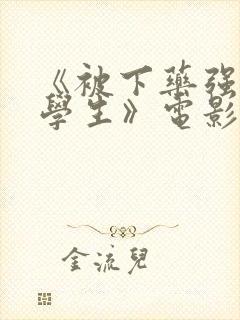 《被下藥強
學生》電影
金流兒